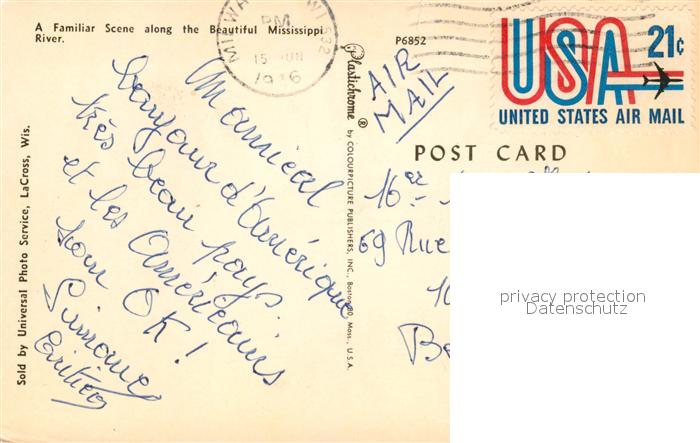 A Familiar Scene along the Beautiful Mississippi
River.
P6852
PM
15 JUN
USA 21¢
UNITED STATES AIR MAIL
AIR
MAIL
POST CARD
Sold by Universal Photo Service, LaCross, Wis.
Plastichrome ® by COLOURPICTURE PUBLISHERS, INC., Boston 30, Mass., U.S.A.
Amical
bonjour d'Amérique
très beau pays
et les Américains
son OK!
Simone
59 Rue
privacy protection
Datenschutz